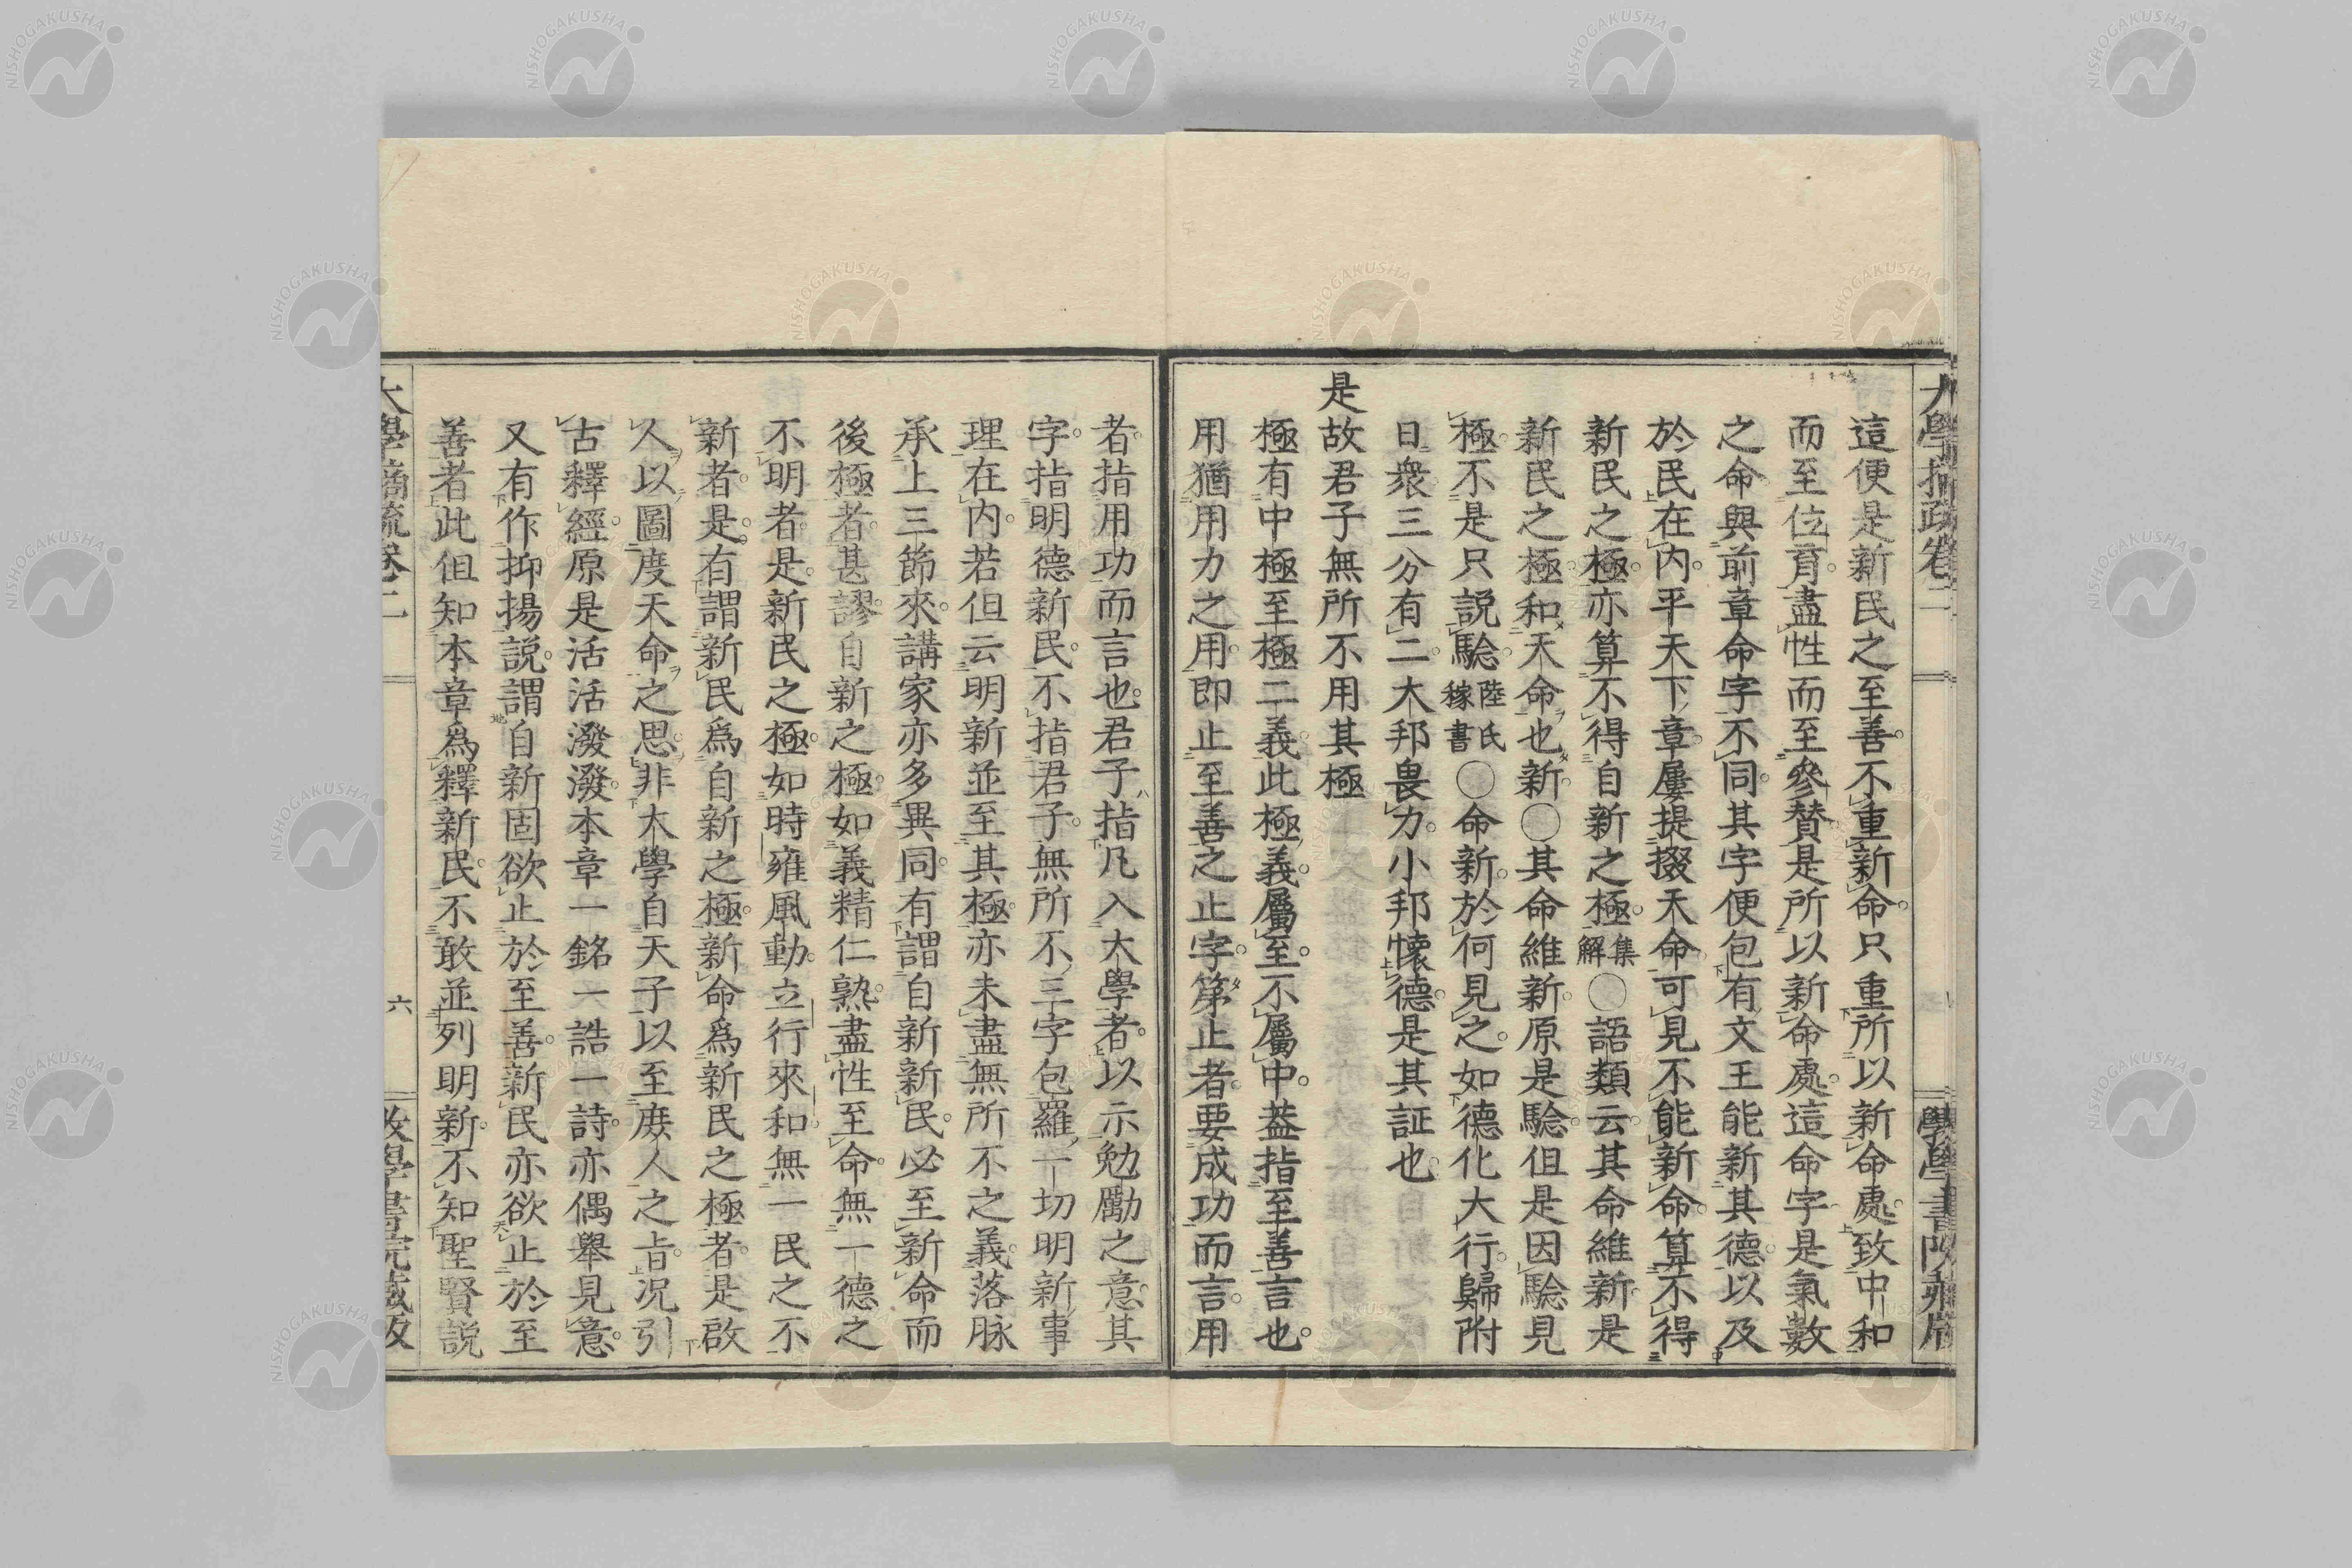 這便是新民之至善。不重新命。只重所以新命處。致中和
而至位育。盡性而至參賛。是所以新命處。這命字是氣數
之命。與前章命字不同。其字便包有文王能新其德。以及
於民在內。平天下章。屢提掇天命。可見不能新命。算不得
新民之極。亦算不得自新之極。集解○語類云。其命維新。是
新民之極。和天命也新。○其命維新。原是驗。但是因驗見
極。不是只説驗。陸氏稼書○命新。於何見之。如德化大行。歸附
日衆。三分有二。大邦畏力。小邦懷德。是其証也。
是故君子無所不用其極
極有中極至極二義。此極義。屬至。不屬中。葢指至善言也。
用猶用力之用。即止至善之止字。第止者。要成功而言。用
者。指用功而言也。君子指凡入大學者。以示勉勵之意。其
字。指明德新民。不指君子。無所不三字。包羅一切明新事
理在內。若但云明新並至其極。亦未盡無所不之義。落脉
承上三節來。講家亦多異同。有謂自新新民。必至新命而
後極者。甚謬。自新之極。如義精仁熟。盡性至命。無一德之
不明者是。新民之極。如時雍風動。立行來和。無一民之不
新者是。有謂新民爲自新之極。新命爲新民之極者。是啟
人以圖度天命之思。非大學自天子以至庶人之旨。况引
古釋經。原是活活潑潑。本章一銘一誥一詩。亦偶舉見意。
又有作抑揚説。謂自新固欲止於至善。新民亦欲止於至
善者。此但知本章爲釋新民。不敢並列明新。不知聖賢説
大學摘疏卷二
六
NISHOGAKUSHA